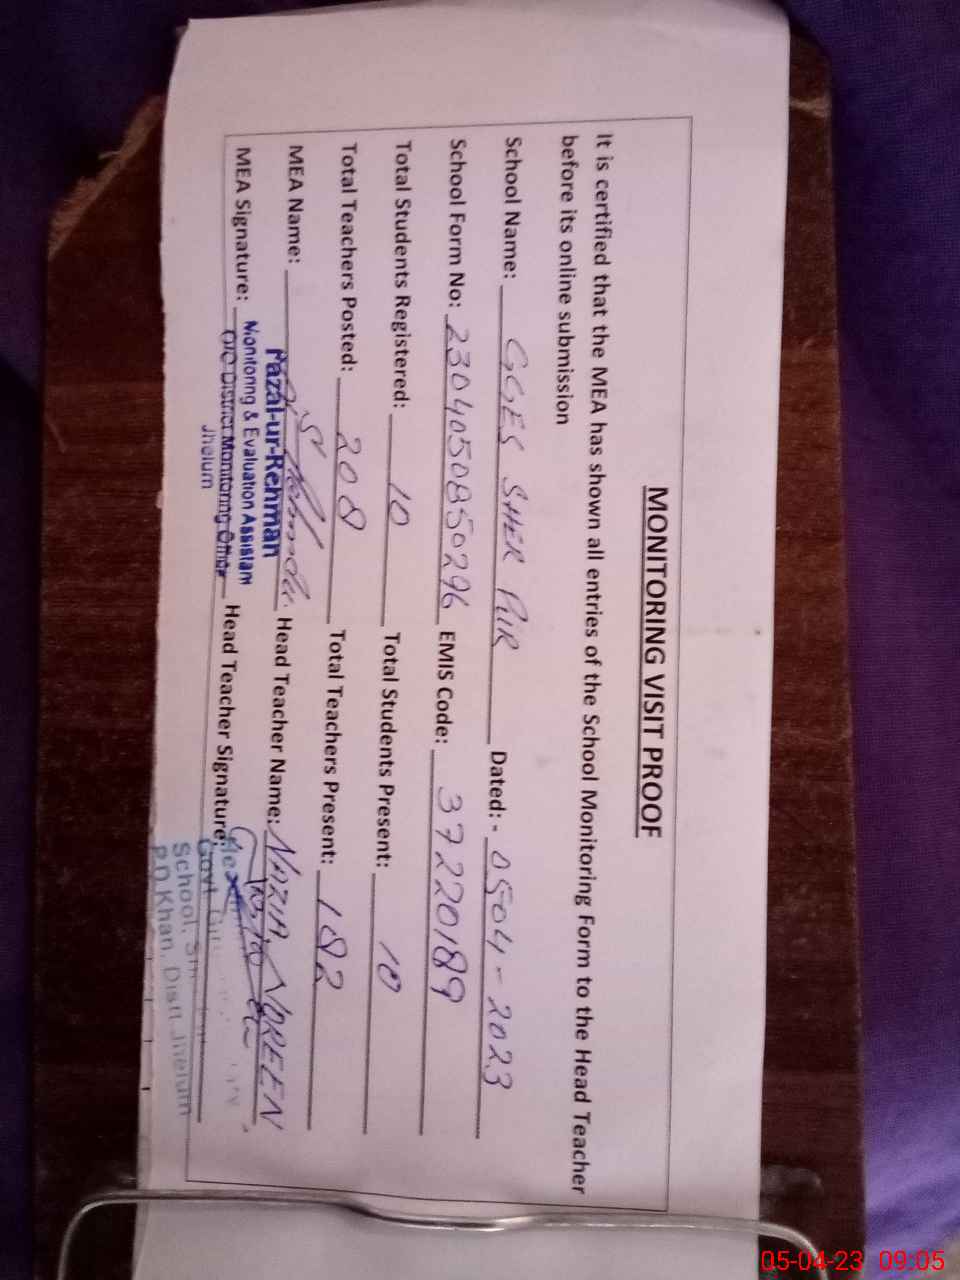 MONITORING VISIT PROOF
It is certified that the MEA has shown all entries of the School Monitoring Form to the Head Teacher
before its online submission
School Name: GGES SHER PUR Dated: - 0504-2023
School Form No: 2304050850296 EMIS Code: 37220189
Total Students Registered: 10 Total Students Present: 10
Total Teachers Posted: 208 Total Teachers Present: 182
MEA Name: Head Teacher Name: NAZIA NOREEN
Fazal-ur-Rehman
Monitoring & Evaluation Assistant
MEA Signature: O/O District Monitoring Office Head Teacher Signature:
Jhelum
Govt.
School,
P.D.Khan, Distt Jhelum
05-04-23 09:05